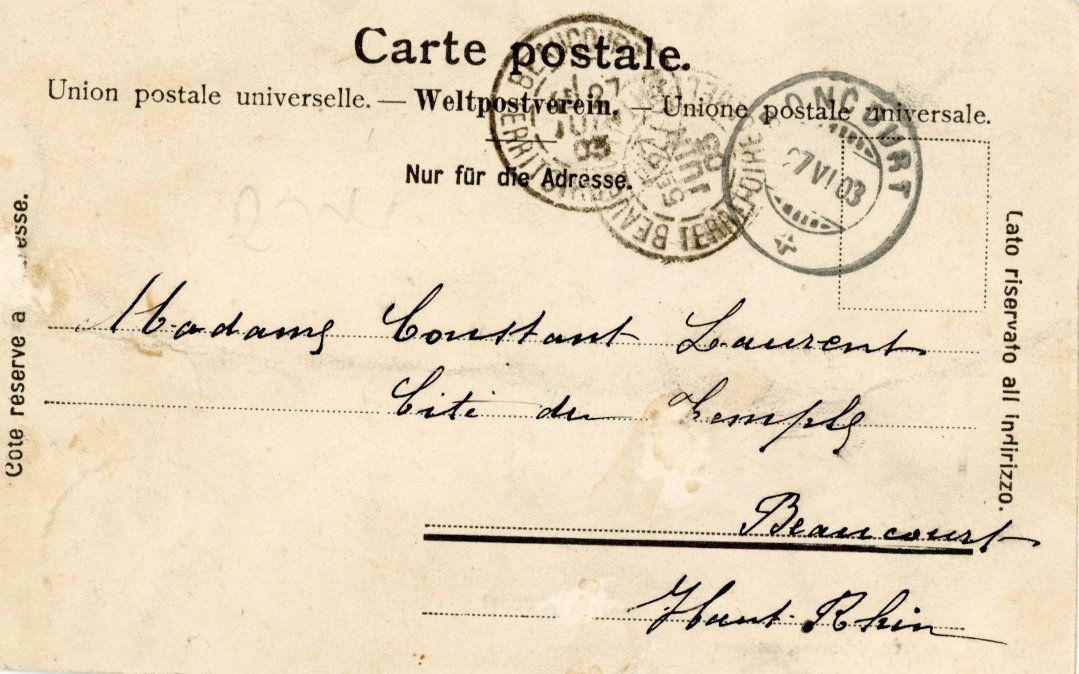 Carte postale.
Union postale universelle. — Weltpostverein. — Unione postale universale.
Nur für die Adresse.
Côte reserve a
Lato riservato all indirizzo.
BONCOURT
27 VI 03
BEAUCOURT
JUIN
03
Madame Constant Laurent
Cité du Temple
Beaucourt
Haut-Rhin